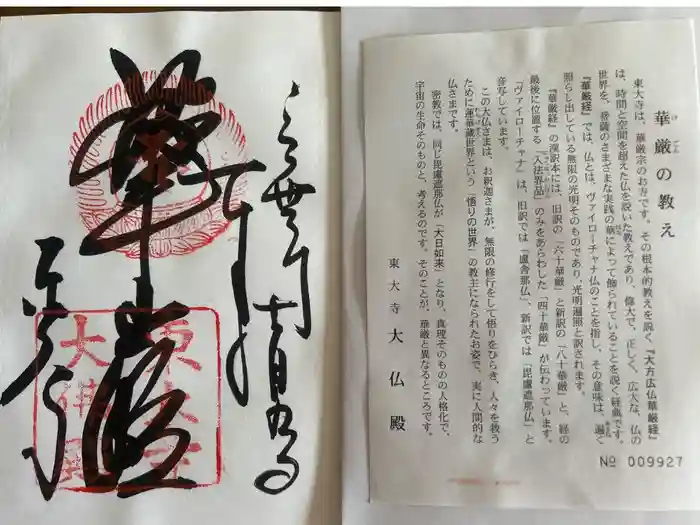 華嚴
東大寺
大佛殿
華厳の教え
東大寺は、華厳宗のお寺です。その根本的教えを説く『大方広仏華厳経』
は、時間と空間を超えた仏を説いた教えであり、偉大で、正しく、広大な、仏の
世界を、菩薩のさまざまな実践の華によって飾られていることを説く経典です。
『華厳経』では、仏とは、ヴァイローチャナ仏のことを指し、その意味は、遍く
照らし出している無限の光明そのものであり、光明遍照と訳されます。
『華厳経』の漢訳本には、旧訳の「六十華厳」と新訳の「八十華厳」と、経の
最後に位置する「入法界品」のみをあらわした「四十華厳」が伝わっています。
「ヴァイローチャナ」は、旧訳では「盧舎那仏」、新訳では「毘盧遮那仏」と
音写しています。
この大仏さまは、お釈迦さまが、無限の修行をして悟りをひらき、人々を救う
ために蓮華蔵世界という「悟りの世界」の教主になられたお姿で、実に人間的な
仏さまです。
密教では、同じ毘盧遮那仏が「大日如来」となり、真理そのものの人格化で、
宇宙の生命そのものと、考えるのです。そのことが、華厳と異なるところです。
東大寺 大仏殿
№ 009927